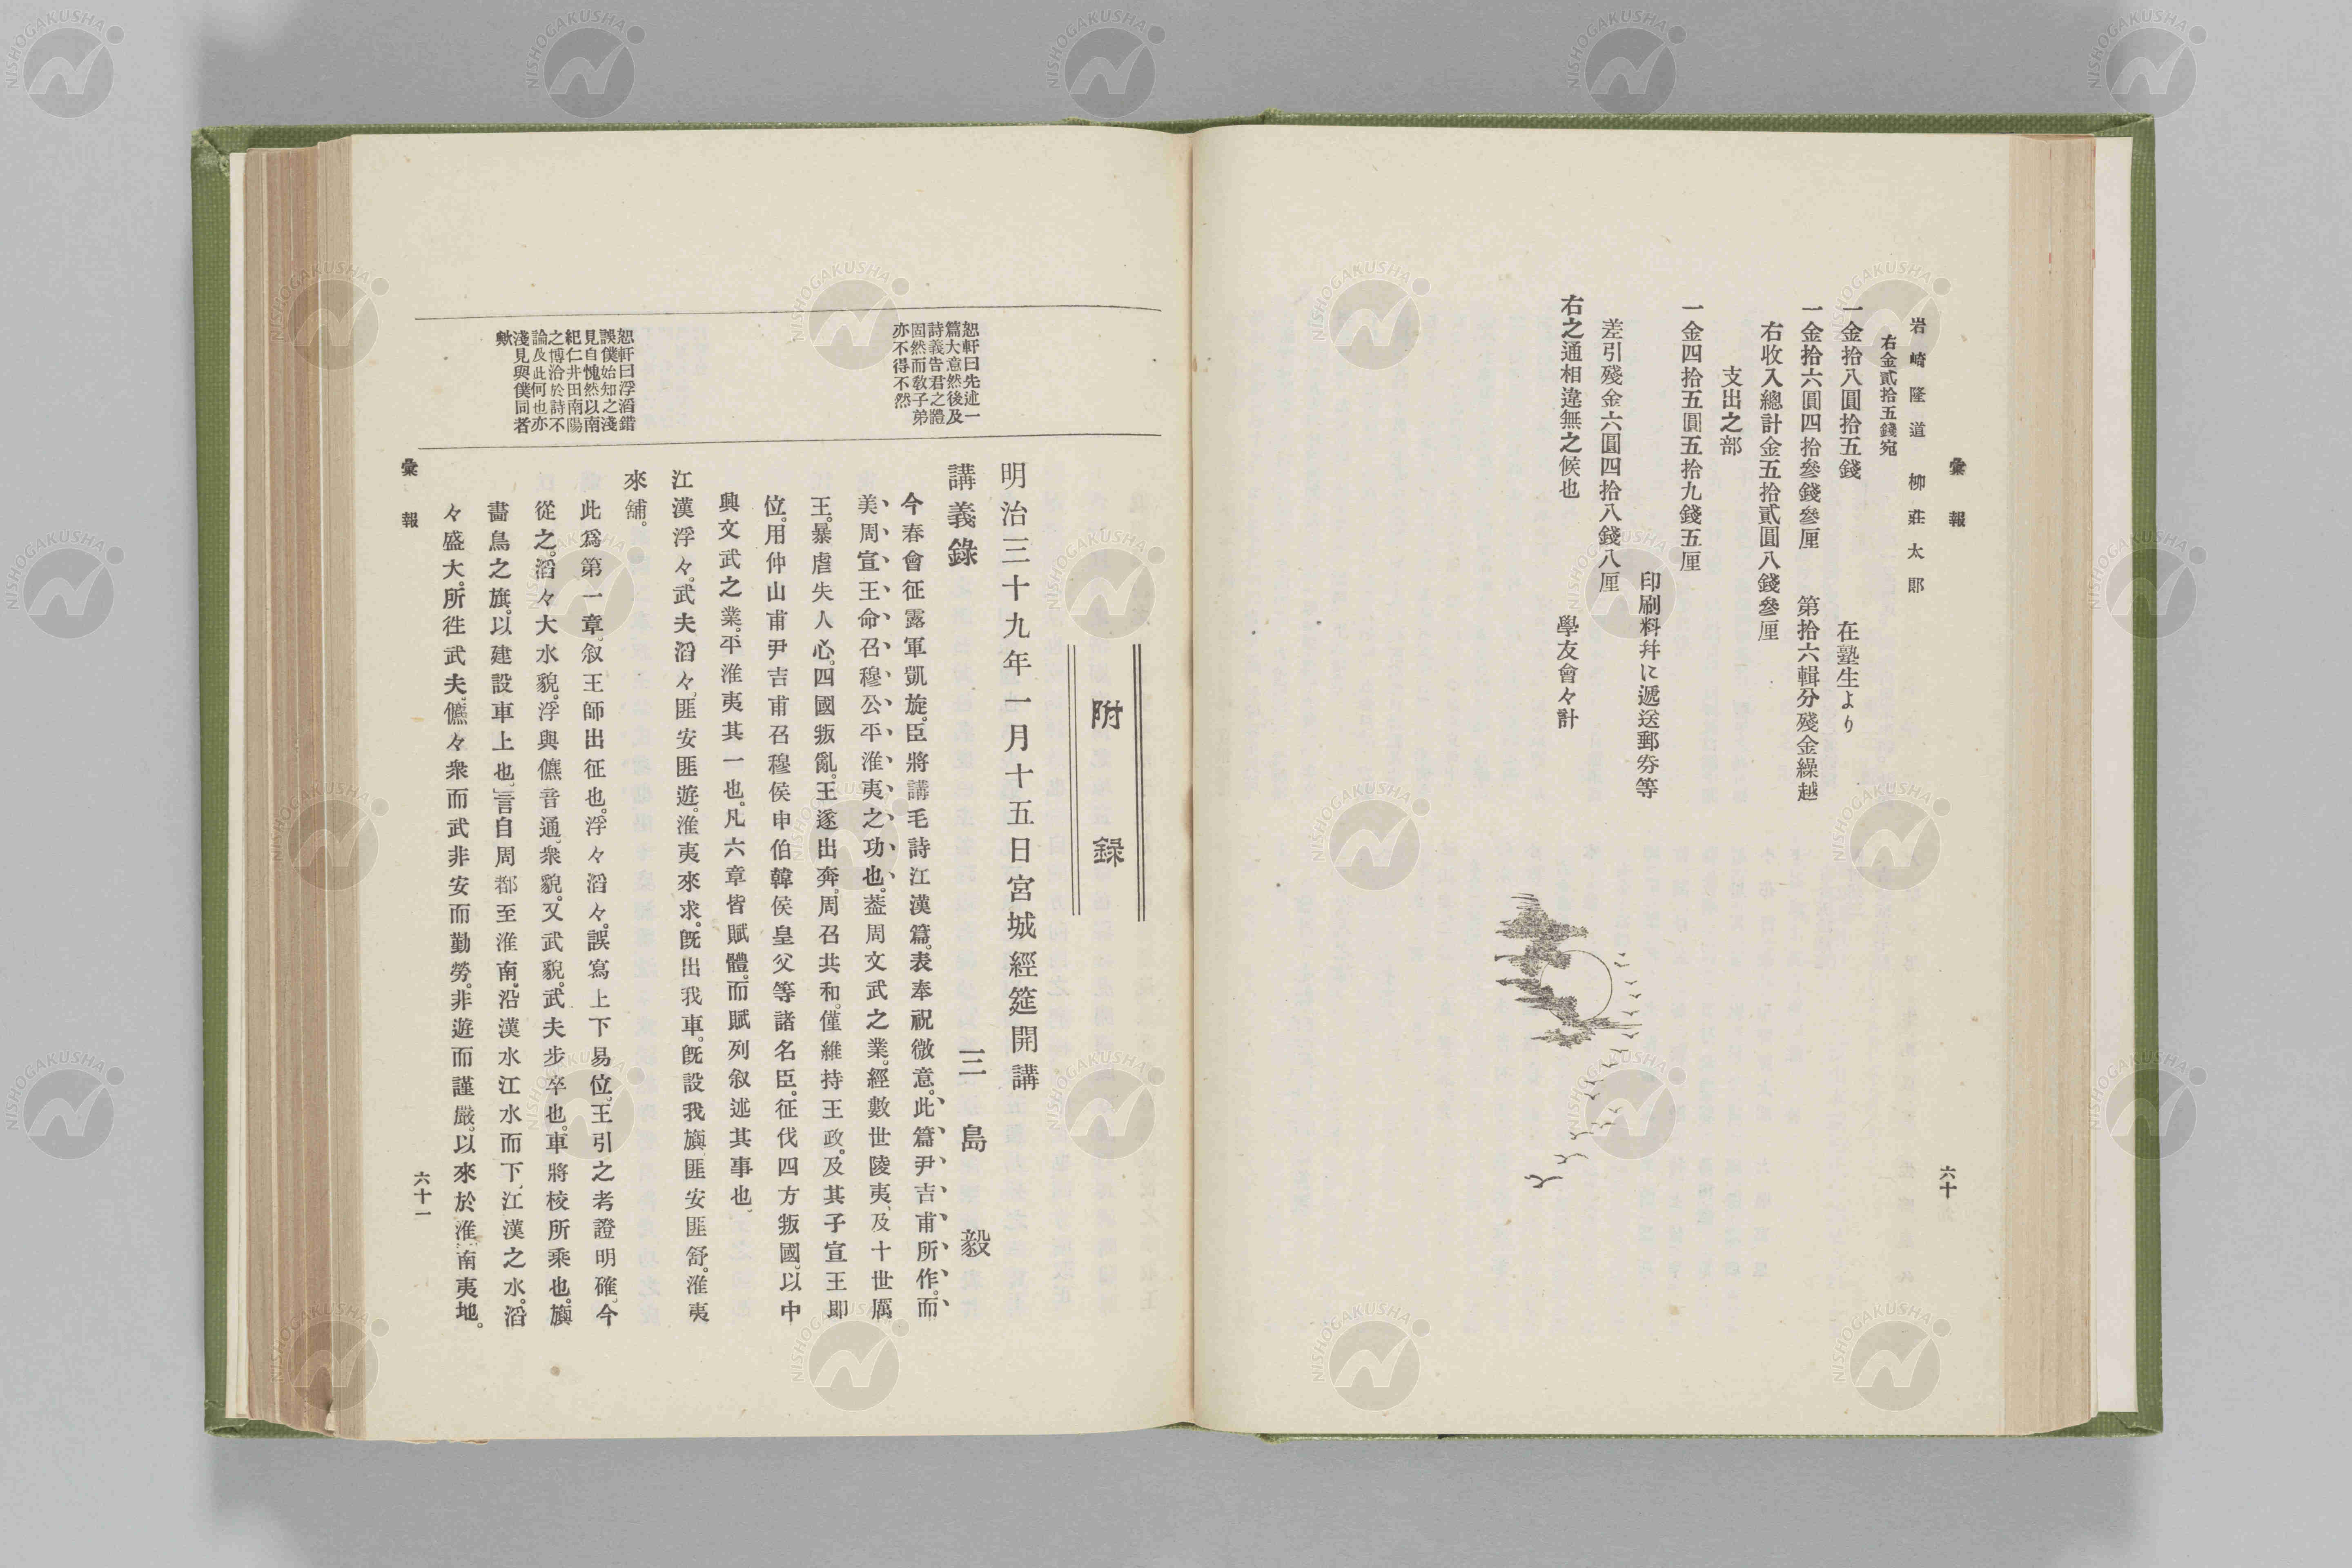 彙報
六十
岩崎隆道 柳莊太郎
右金貳拾五錢宛
一金拾八圓拾五錢 在塾生より
一金拾六圓四拾參錢參厘 第拾六輯分殘金繰越
右收入總計金五拾貳圓八錢參厘
支出之部
一金四拾五圓五拾九錢五厘
印刷料幷に遞送郵券等
差引殘金六圓四拾八錢八厘
右之通相違無之候也 學友會々計
附錄
明治三十九年一月十五日宮城經筵開講
講義錄 三島毅
恕軒曰先述一
篇大意然後及
詩義告君之體
固然而敎子弟
亦不得不然
今春會征露軍凱旋。臣將講毛詩江漢篇。表奉祝微意。此篇尹吉甫所作。而
美周宣王命召穆公平淮夷之功也。葢周文武之業。經數世陵夷、及十世厲
王。暴虐失人心。四國叛亂。王遂出奔。周召共和。僅維持王政。及其子宣王卽
位。用仲山甫尹吉甫召穆侯申伯韓侯皇父等諸名臣。征伐四方叛國。以中
興文武之業。平淮夷其一也。凡六章皆賦體。而賦列叙述其事也。
江漢浮々。武夫滔々。匪安匪遊。淮夷來求。旣出我車。旣設我旟。匪安匪舒。淮夷
來舖。
恕軒曰浮滔錯
誤僕始知之淺
見自愧然以南
紀仁井田南陽
之博洽於詩不
論及此何也亦
淺見與僕同者
歟
此爲第一章。叙王師出征也。浮々滔々。誤寫上下易位。王引之考證明確。今
從之。滔々大水貌。浮與儦音通。衆貌。又武貌。武夫步卒也。車將校所乘也。旟
畵鳥之旗。以建設車上也。言自周都至淮南。沿漢水江水而下。江漢之水。滔
々盛大。所徃武夫。儦々衆而武非安而勤勞。非遊而謹嚴。以來於淮南夷地。
彙報
六十一
NISHOGAKUSHA